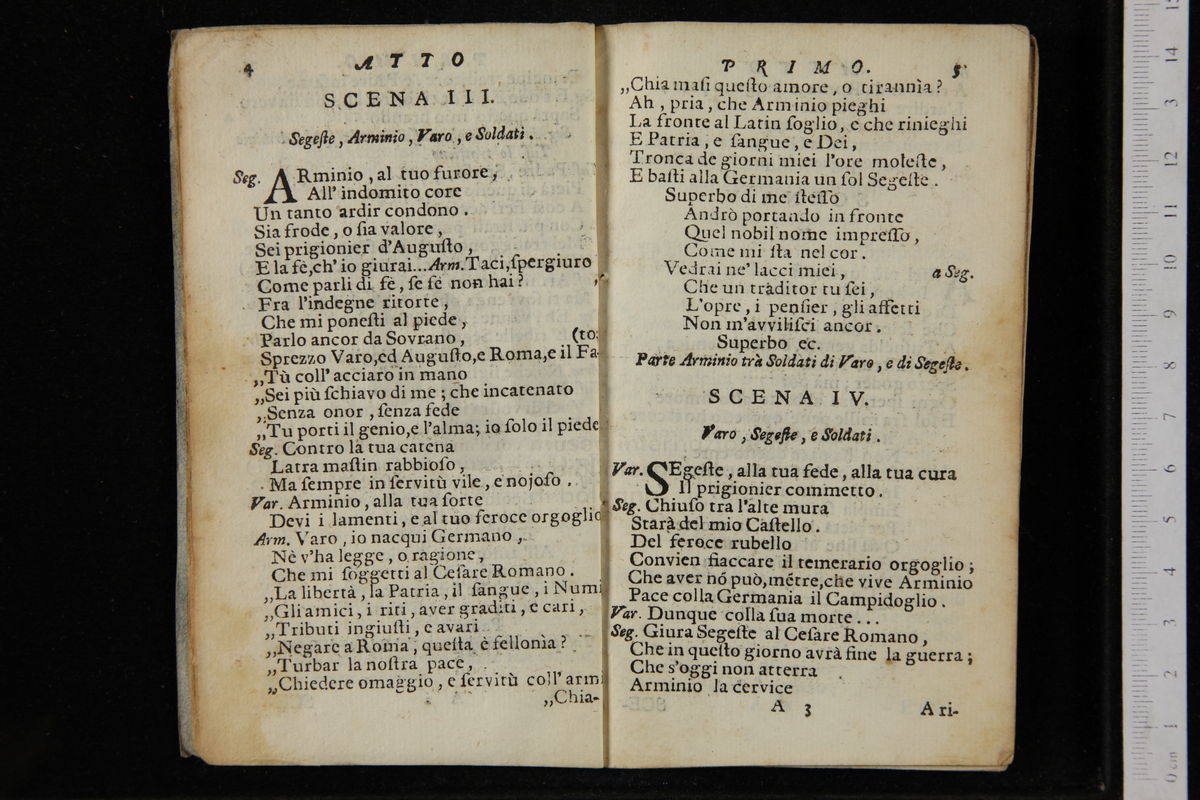 4
ATTO
SCENA III.
Segeſte, Arminio, Varo, e Soldati.
Seg. ARminio, al tuo furore,
All' indomito core
Un tanto ardir condono.
Sia frode, o ſia valore,
Sei prigionier d'Auguſto,
E la fè, ch' io giurai... Arm. Taci, ſpergiuro
Come parli di fè, ſe fè non hai?
Fra l'indegne ritorte,
Che mi poneſti al piede,
Parlo ancor da Sovrano, (to:
Sprezzo Varo, ed Auguſto, e Roma, e il Fa-
„Tù coll' acciaro in mano
„Sei più ſchiavo di me; che incatenato
„Senza onor, ſenza fede
„Tu porti il genio, e l'alma; io ſolo il piede
Seg. Contro la tua catena
Latra maſtin rabbioſo,
Ma ſempre in ſervitù vile, e nojoſo.
Var. Arminio, alla tua ſorte
Devi i lamenti, e al tuo feroce orgoglio
Arm. Varo, io nacqui Germano,
Nè v'ha legge, o ragione,
Che mi ſoggetti al Ceſare Romano.
„La libertà, la Patria, il ſangue, i Numi
„Gli amici, i riti, aver graditi, e cari,
„Tributi ingiuſti, e avari
„Negare a Roma, queſta è fellonìa?
„Turbar la noſtra pace,
„Chiedere omaggio, e ſervitù coll' armi
„Chia-
PRIMO.
5
„Chiamaſi queſto amore, o tirannìa?
Ah, pria, che Arminio pieghi
La fronte al Latin ſoglio, e che rinieghi
E Patria, e ſangue, e Dei,
Tronca de giorni miei l'ore moleſte,
E baſti alla Germania un ſol Segeſte.
Superbo di me ſteſſo
Andrò portando in fronte
Quel nobil nome impreſſo,
Come mi ſta nel cor.
Vedrai ne' lacci miei, a Seg.
Che un traditor tu ſei,
L'opre, i penſier, gli affetti
Non m'avviliſci ancor.
Superbo ec.
Parte Arminio trà Soldati di Varo, e di Segeſte.
SCENA IV.
Varo, Segeſte, e Soldati.
Var. SEgeſte, alla tua fede, alla tua cura
Il prigionier commetto.
Seg. Chiuſo tra l'alte mura
Starà del mio Caſtello.
Del feroce rubello
Convien fiaccare il temerario orgoglio;
Che aver nó può, métre, che vive Arminio
Pace colla Germania il Campidoglio.
Var. Dunque colla ſua morte...
Seg. Giura Segeſte al Ceſare Romano,
Che in queſto giorno avrà fine la guerra;
Che s'oggi non atterra
Arminio la cervice
A 3
A ri-
0 cm 1 2 3 4 5 6 7 8 9 10 11 12 13 14 15